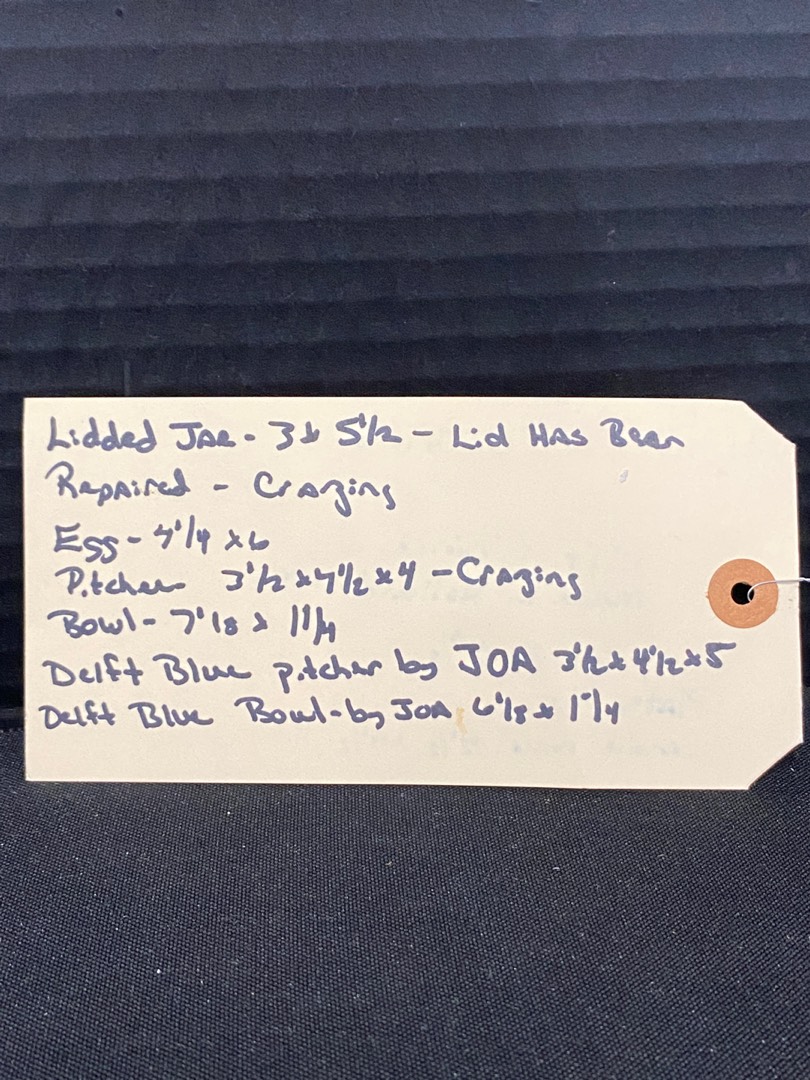 Lidded Jar - 3 x 5 1/2 - Lid Has Been
Repaired - Crazing
Egg - 4 1/4 x 6
Pitcher 3 1/2 x 4 1/2 x 4 - Crazing
Bowl - 7 1/8 x 1 1/4
Delft Blue pitcher by JOA 3 1/2 x 4 1/2 x 5
Delft Blue Bowl - by JOA 6 1/8 x 1 1/4